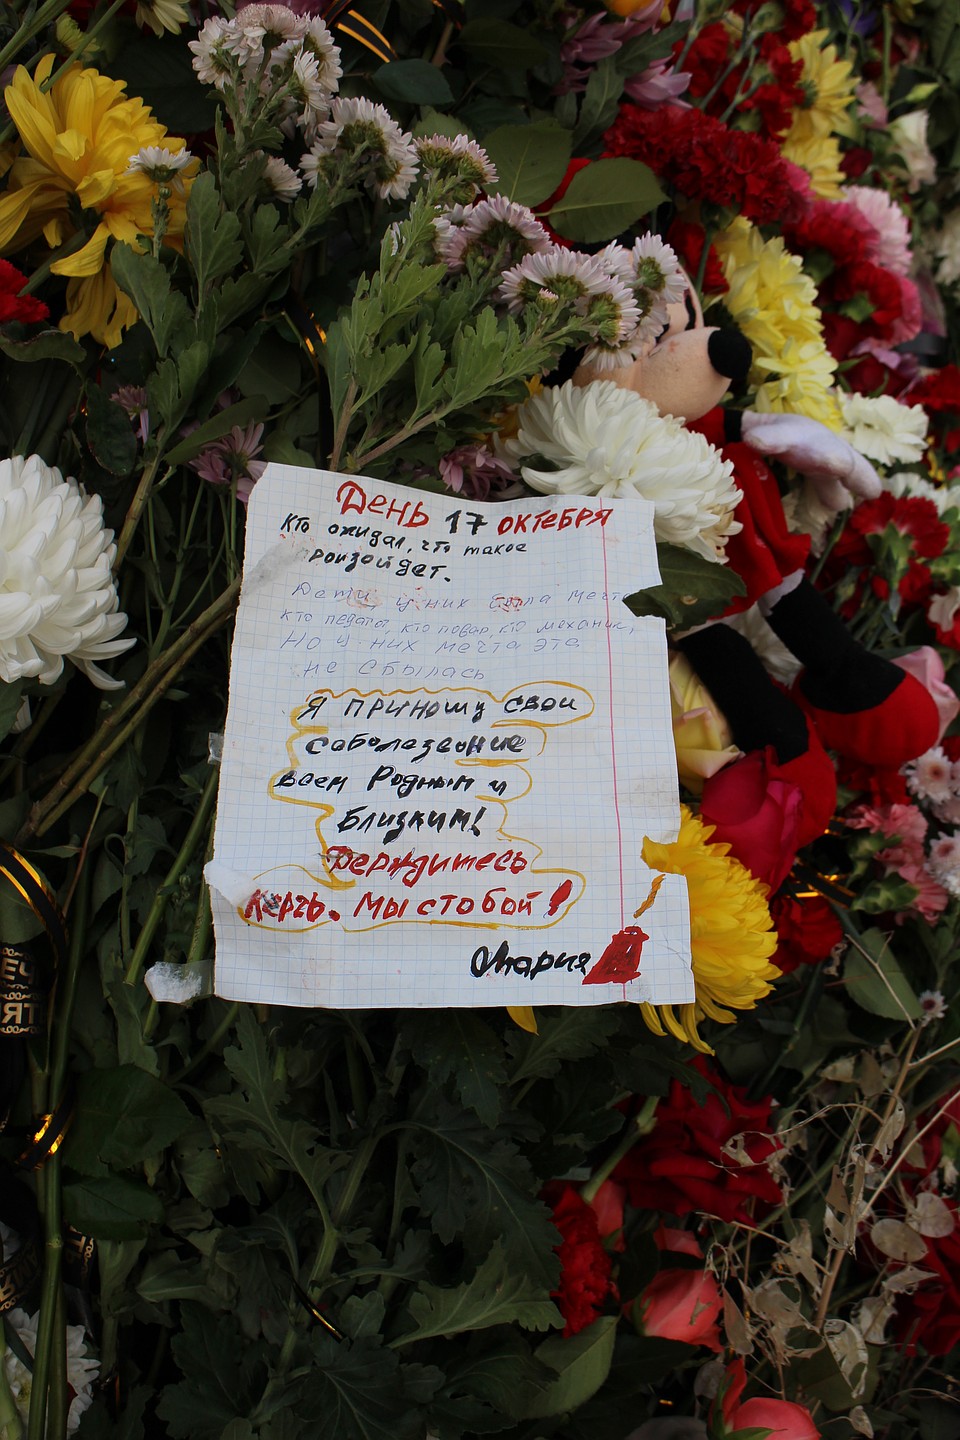 День 17 октября
Кто ожидал, что такое
произойдет.
Дети, у них была мечта
кто педагог, кто повар, кто механик,
Но у них мечта эта
не сбылась
Я приношу свои
соболезвоние
всем Родным и
Близким!
Держдитесь
Керчь. Мы стобой!
Мария